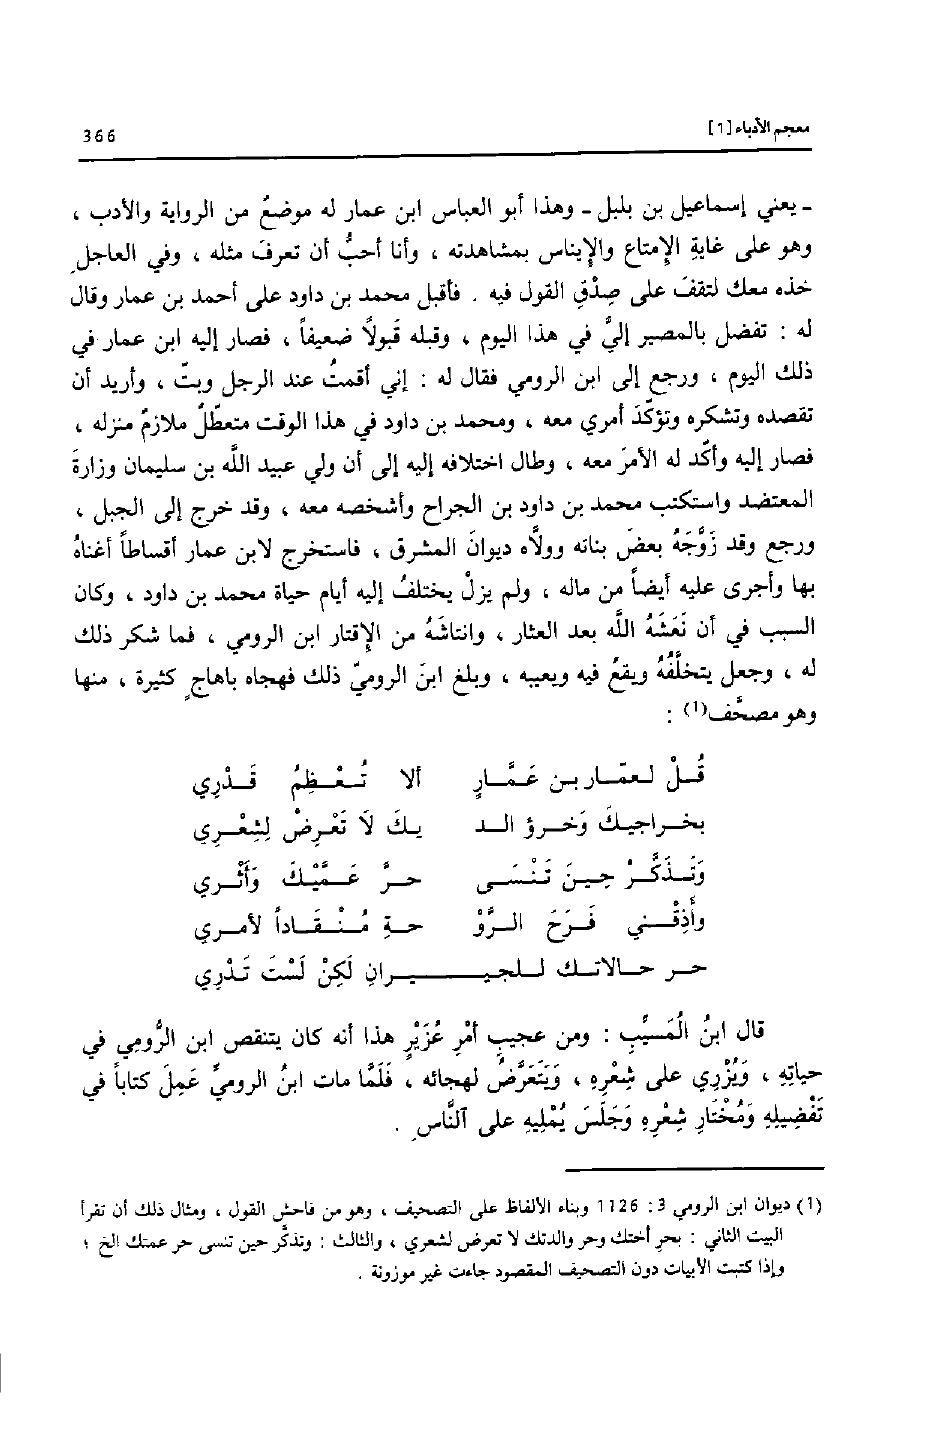 معجم الأدباء [1]
366
ـ يعني إسماعيل بن بلبل ـ وهذا أبو العباس ابن عمار له موضعٌ من الرواية والأدب ،
وهو على غاية الإمتاع والإيناس بمشاهدته ، وأنا أحبُّ أن تعرفَ مثله ، وفي العاجلِ
خذه معك لتقفَ على صِدْقِ القول فيه . فأقبل محمد بن داود على أحمد بن عمار وقال
له : تفضل بالمصير إليَّ في هذا اليوم ، وقبله قَبولاً ضعيفاً ، فصار إليه ابن عمار في
ذلك اليوم ، ورجع إلى ابن الرومي فقال له : إني أقمتُ عند الرجل وبتّ ، وأريد أن
تقصده وتشكره وتؤكّدَ أمري معه ، ومحمد بن داود في هذا الوقت متعطّلٌ ملازمٌ منزله ،
فصار إليه وأكّد له الأمرَ معه ، وطال اختلافه إليه إلى أن ولي عبيد اللّه بن سليمان وزارةَ
المعتضد واستكتب محمد بن داود بن الجراح وأشخصه معه ، وقد خرج إلى الجبل ،
ورجع وقد زَوَّجَهُ بعضَ بناته وولّاه ديوانَ المشرق ، فاستخرج لابن عمار أقساطاً أغناهُ
بها وأجرى عليه أيضاً من ماله ، ولم يزلْ يختلفُ إليه أيام حياة محمد بن داود ، وكان
السبب في أن نَعَشَهُ اللّه بعد العثار ، وانتاشَهُ من الإقتار ابن الرومي ، فما شكر ذلك
له ، وجعل يتخلَّفُهُ ويقعُ فيه ويعيبه ، وبلغ ابنَ الروميّ ذلك فهجاه باهاجٍ كثيرة ، منها
وهو مصحَّف(1) :
قُـلْ لـعمّـار بـن عَـمَّـارٍ ألا تُـعْـظِمُ قَـدْرِي
بخـراجيـكَ وَخـرؤ الـد يـكَ لَا تَعْـرِضْ لِشِعْـرِي
وَتَـذَكَّـرْ حِيـنَ تَـنْـسَـى حـرَّ عَـمَّيْـكَ وَأَثْـرِي
وأَذِقْـنـي فَـرَحَ الـرَّوْ حـةِ مُـنْـقَـاداً لأمـري
حـر حـالاتـك لـلجيـران لَكِنْ لَسْتَ تَـدْرِي
قال ابنُ الْمُسَيَّبِ : ومن عجيبِ أمْرِ عُزَيْرٍ هذا أنه كان يتنقص ابن الرُّومِي في
حياتِهِ ، وَيُزْرِي على شِعْرِهِ ، وَيَتَعَرَّضُ لهجائه ، فَلَمَّا مات ابنُ الروميّ عَمِلَ كتاباً في
تَفْضِيلِهِ وَمُخْتَارِ شِعْرِهِ وَجَلَسَ يُمْلِيهِ على النَّاسِ .
(1) ديوان ابن الرومي 3 : 1126 وبناء الألفاظ على التصحيف ، وهو من فاحش القول ، ومثال ذلك أن تقرأ
البيت الثاني : بحرِ أختك وحر والدتك لا تعرض لشعري ، والثالث : وتذكَّر حين تنسى حر عمتك الخ ؛
وإذا كتبت الأبيات دون التصحيف المقصود جاءت غير موزونة .